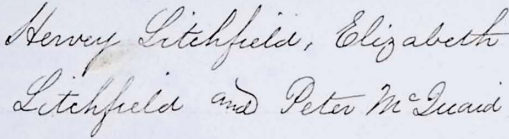 Hervey Litchfield, Elizabeth
Litchfield and Peter McQuaid